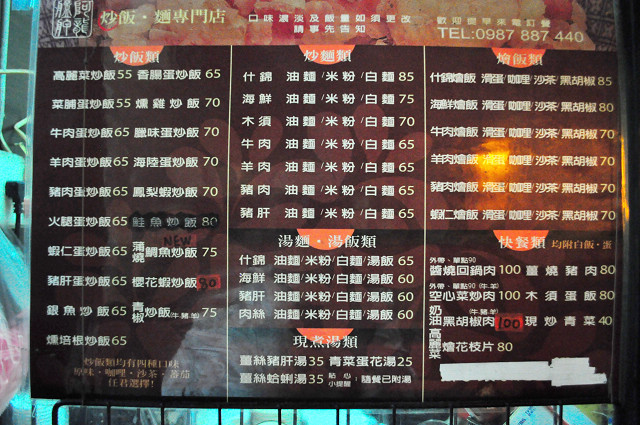 阿龍
炒飯・麵專門店
口味濃淡及飯量如須更改
請事先告知
歡迎儘早來電訂餐
TEL:0987 887 440
炒飯類
高麗菜炒飯55 香腸蛋炒飯 65
菜脯蛋炒飯55 燻雞炒飯 70
牛肉蛋炒飯65 臘味蛋炒飯 70
羊肉蛋炒飯65 海陸蛋炒飯 70
豬肉蛋炒飯65 鳳梨蝦炒飯 70
火腿蛋炒飯65 鮭魚炒飯 80
NEW
蝦仁蛋炒飯65 蒲燒鯛魚炒飯 75
豬肝蛋炒飯65 櫻花蝦炒飯 80
銀魚炒飯65 青椒炒飯(牛豬羊) 75
燻培根炒飯65
炒飯類均有四種口味
原味・咖哩・沙茶・蕃茄
任君選擇!
炒麵類
什錦 油麵/米粉/白麵 85
海鮮 油麵/米粉/白麵 75
木須 油麵/米粉/白麵 70
牛肉 油麵/米粉/白麵 65
羊肉 油麵/米粉/白麵 65
豬肉 油麵/米粉/白麵 65
豬肝 油麵/米粉/白麵 65
湯麵・湯飯類
什錦 油麵/米粉/白麵/湯飯 65
海鮮 油麵/米粉/白麵/湯飯 60
豬肝 油麵/米粉/白麵/湯飯 60
肉絲 油麵/米粉/白麵/湯飯 60
現煮湯類
薑絲豬肝湯35 青菜蛋花湯25
薑絲蛤蜊湯35 貼心小提醒:隨餐已附湯
燴飯類
什錦燴飯 滑蛋/咖哩/沙茶/黑胡椒 85
海鮮燴飯 滑蛋/咖哩/沙茶/黑胡椒 80
牛肉燴飯 滑蛋/咖哩/沙茶/黑胡椒 70
羊肉燴飯 滑蛋/咖哩/沙茶/黑胡椒 70
豬肉燴飯 滑蛋/咖哩/沙茶/黑胡椒 70
蝦仁燴飯 滑蛋/咖哩/沙茶/黑胡椒 70
快餐類 均附白飯・蛋
外帶、單點90
醬燒回鍋肉 100 薑燒豬肉 80
外帶、單點90 (牛羊)
空心菜炒肉 100 木須蛋飯 80
(牛豬羊)
奶油黑胡椒肉 100 現炒青菜 40
高麗菜燴花枝片 80